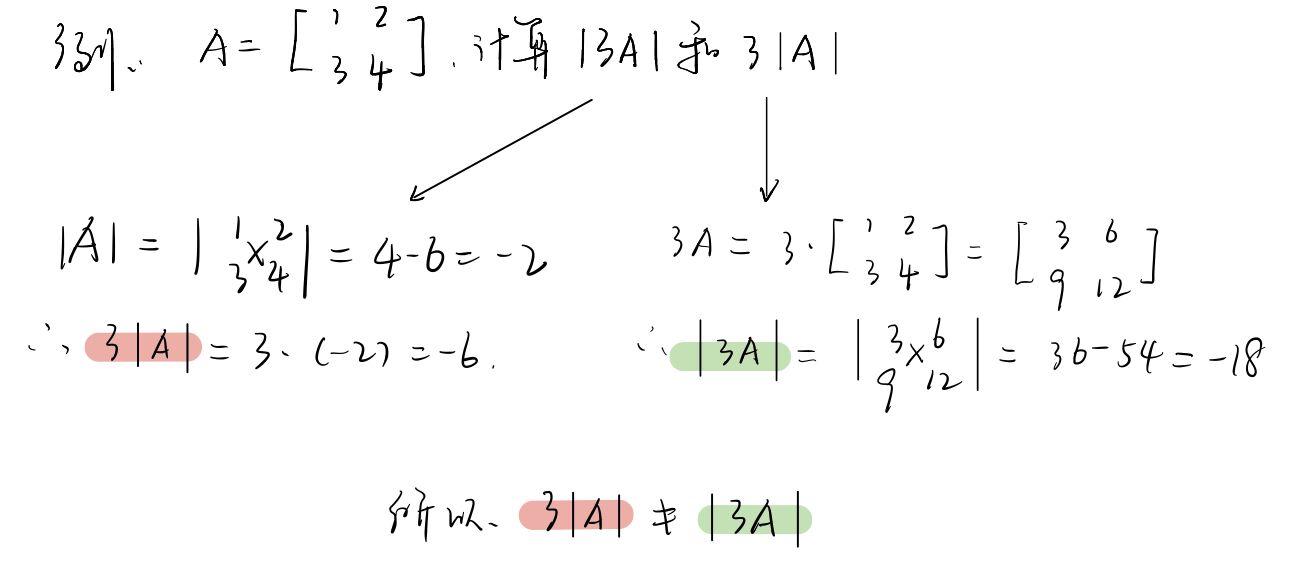 例、 A = [ 1 2 3 4 ] . 计算 |3A| 和 3|A|
|A| = | 1 2 3 4 | = 4-6 = -2
∴ 3|A| = 3 · (-2) = -6 .
3A = 3 · [ 1 2 3 4 ] = [ 3 6 9 12 ]
∴ |3A| = | 3 6 9 12 | = 36-54 = -18
所以、 3|A| ≠ |3A|